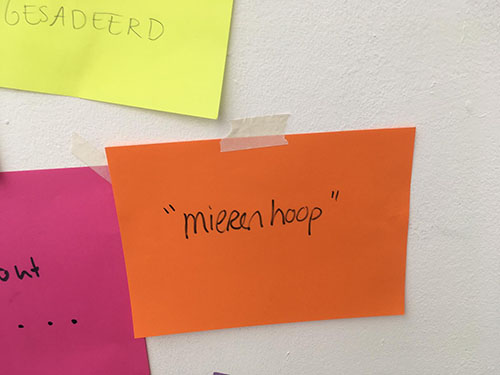 GESADEERD
"mierenhoop"
out
. . .